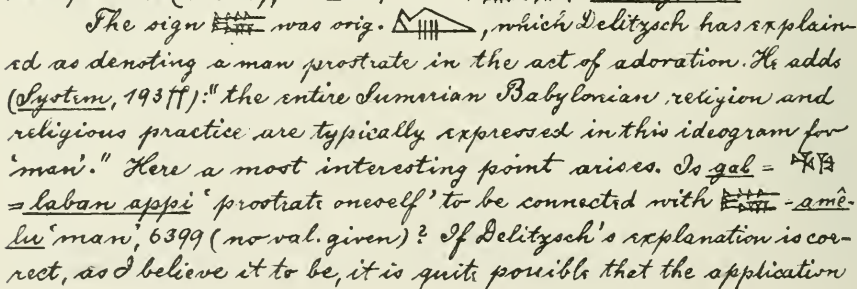 The sign was orig. , which Delitzsch has explain-
ed as denoting a man prostrate in the act of adoration. He adds
(System, 193ff): "the entire Sumerian Babylonian religion and
religious practice are typically expressed in this ideogram for
'man'." Here a most interesting point arises. Is gal =
= laban appi 'prostrate oneself' to be connected with - amê-
lu 'man', 6399 (no val. given)? If Delitzsch's explanation is cor-
rect, as I believe it to be, it is quite possible that the application